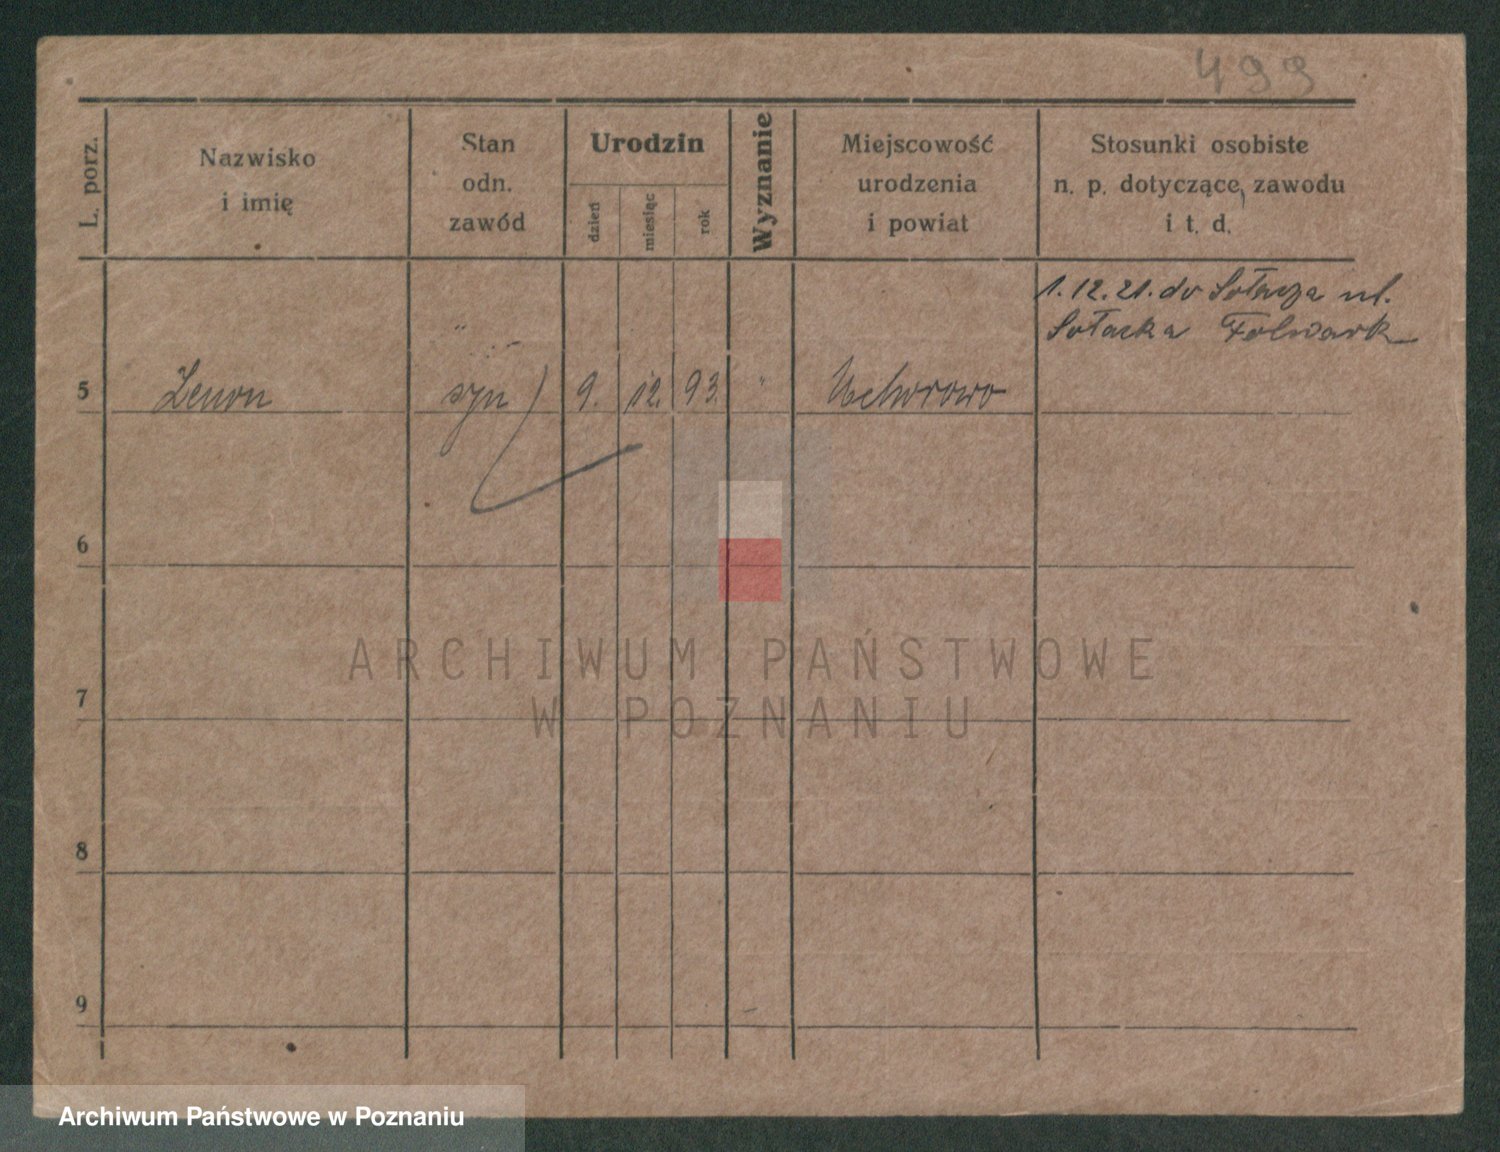 499
L. porz.
Nazwisko
i imię
Stan
odn.
zawód
Urodzin
dzień
miesiąc
rok
Wyznanie
Miejscowość
urodzenia
i powiat
Stosunki osobiste
n. p. dotyczące, zawodu
i t. d.
1.12.21. do Sołacza ul.
Sołacka Folwark
5 Zenon syn 9. 12. 93. " Uchorowo
6
7
8
9
ARCHIWUM PAŃSTWOWE
W POZNANIU
Archiwum Państwowe w Poznaniu